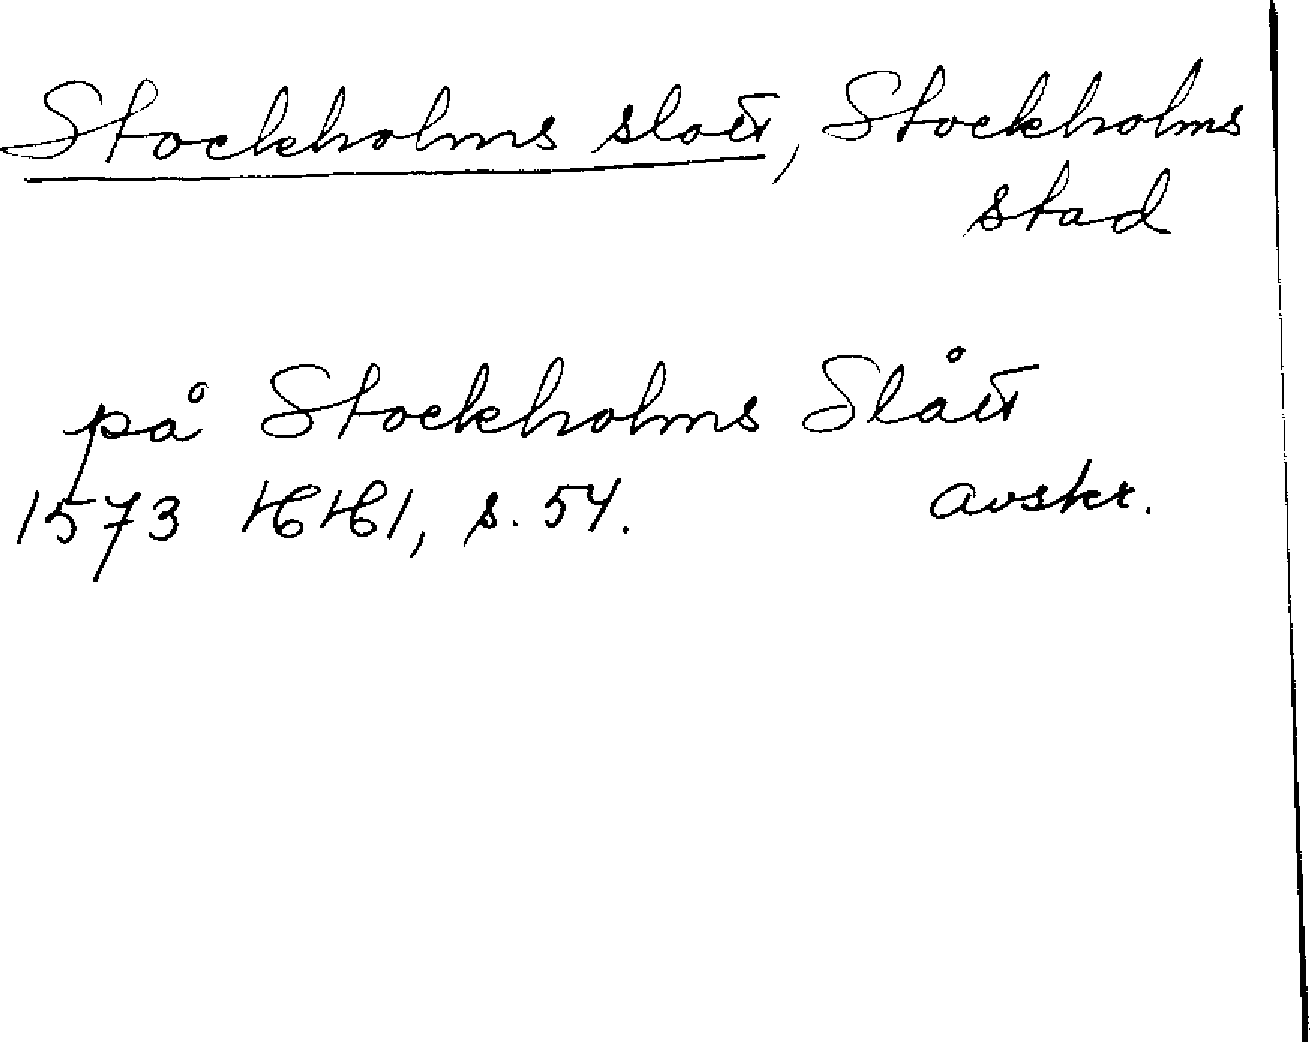 Stockholms slott, Stockholms
stad
på Stockholms Slått
1573 HH1, s. 54. avskr.